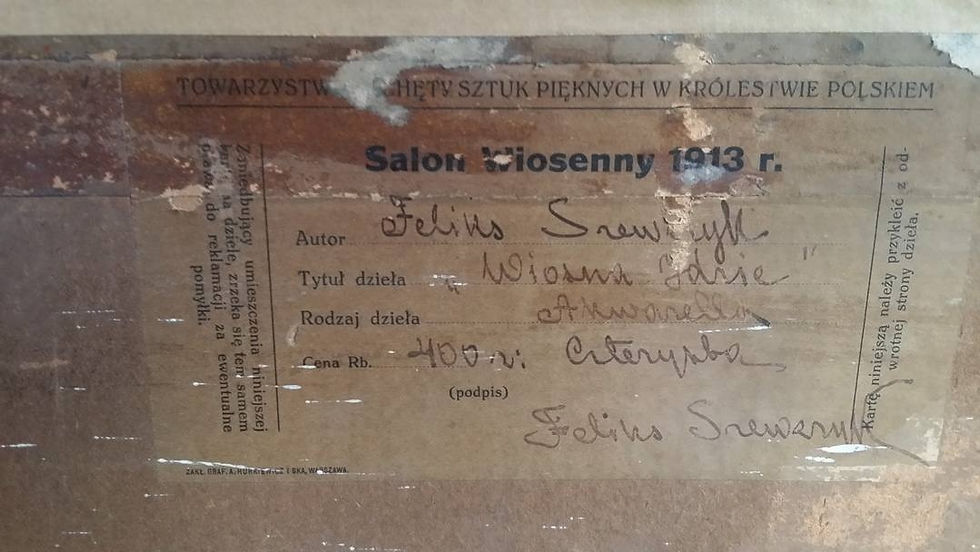 TOWARZYSTW CHĘTY SZTUK PIĘKNYCH W KRÓLESTWIE POLSKIEM
Salon Wiosenny 1913 r.
Autor Feliks Szewczyk
Tytuł dzieła „Wiosna Idzie"
Rodzaj dzieła Akwarella
Cena Rb. 400 r: Czterysta
(podpis)
Feliks Szewczyk
Zaniedbujący umieszczenia niniejszej
na dziele, zrzeka się tem samem
prawa do reklamacji za ewentualne
pomyłki.
Kartę niniejszą należy przykleić z od-
wrotnej strony dzieła.
ZAKŁ. GRAF. A. HURKIEWICZ I SKA, WARSZAWA.